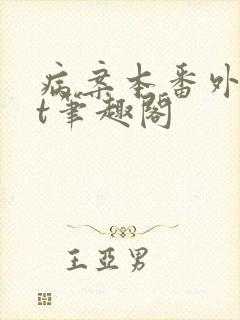 病案本番外
t笔趣阁
王亚男